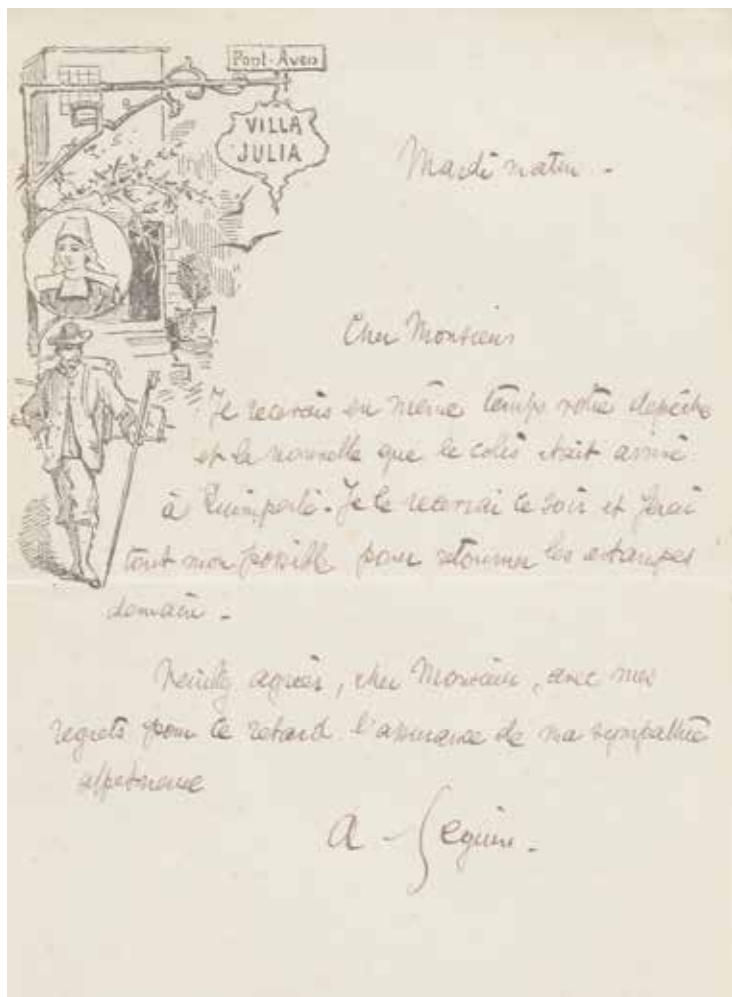 Pont-Aven
VILLA
JULIA
Mardi matin -
Cher Monsieur
Je recevais en même temps votre dépêche
et la nouvelle que le colis était arrivé
à Quimperlé. Je le recevrai ce soir et ferai
tout mon possible pour retourner les estampes
demain -
Veuillez agréer, cher Monsieur, avec mes
regrets pour ce retard l'assurance de ma sympathie
affectueuse
A - Seguin -